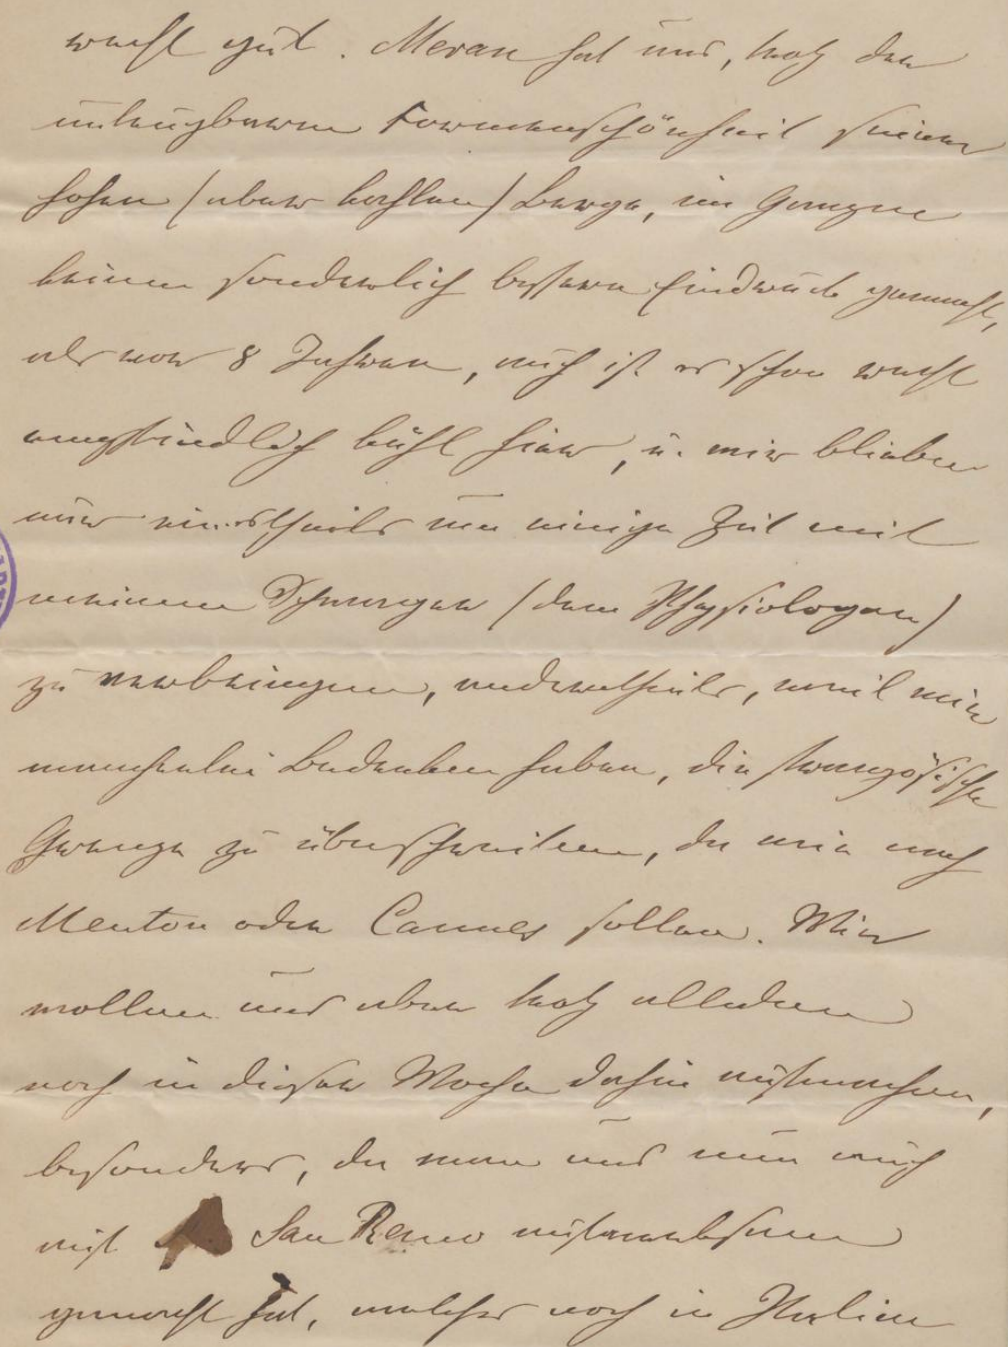 recht gut. Meran hat uns, trotz der
unleugbaren Formenschönheit seiner
hohen (aber kahlen) Berge, im Ganzen
keinen sonderlich bessern Eindruck gemacht,
als vor 8 Jahren, auch ist es schon recht
empfindlich kühl hier, u. wir blieben
nur einestheils um einige Zeit mit
meinem Schwager (dem Physiologen)
zu verbringen, anderntheils, weil wir
mancherlei Bedenken haben, die französische
Grenze zu überschreiten, da wir nach
Menton oder Cannes sollen. Wir
wollen uns aber trotz alledem
noch in dieser Woche dahin aufmachen,
besonders, da man uns nun auch
auf San Remo aufmerksam
gemacht hat, welches noch in Italien